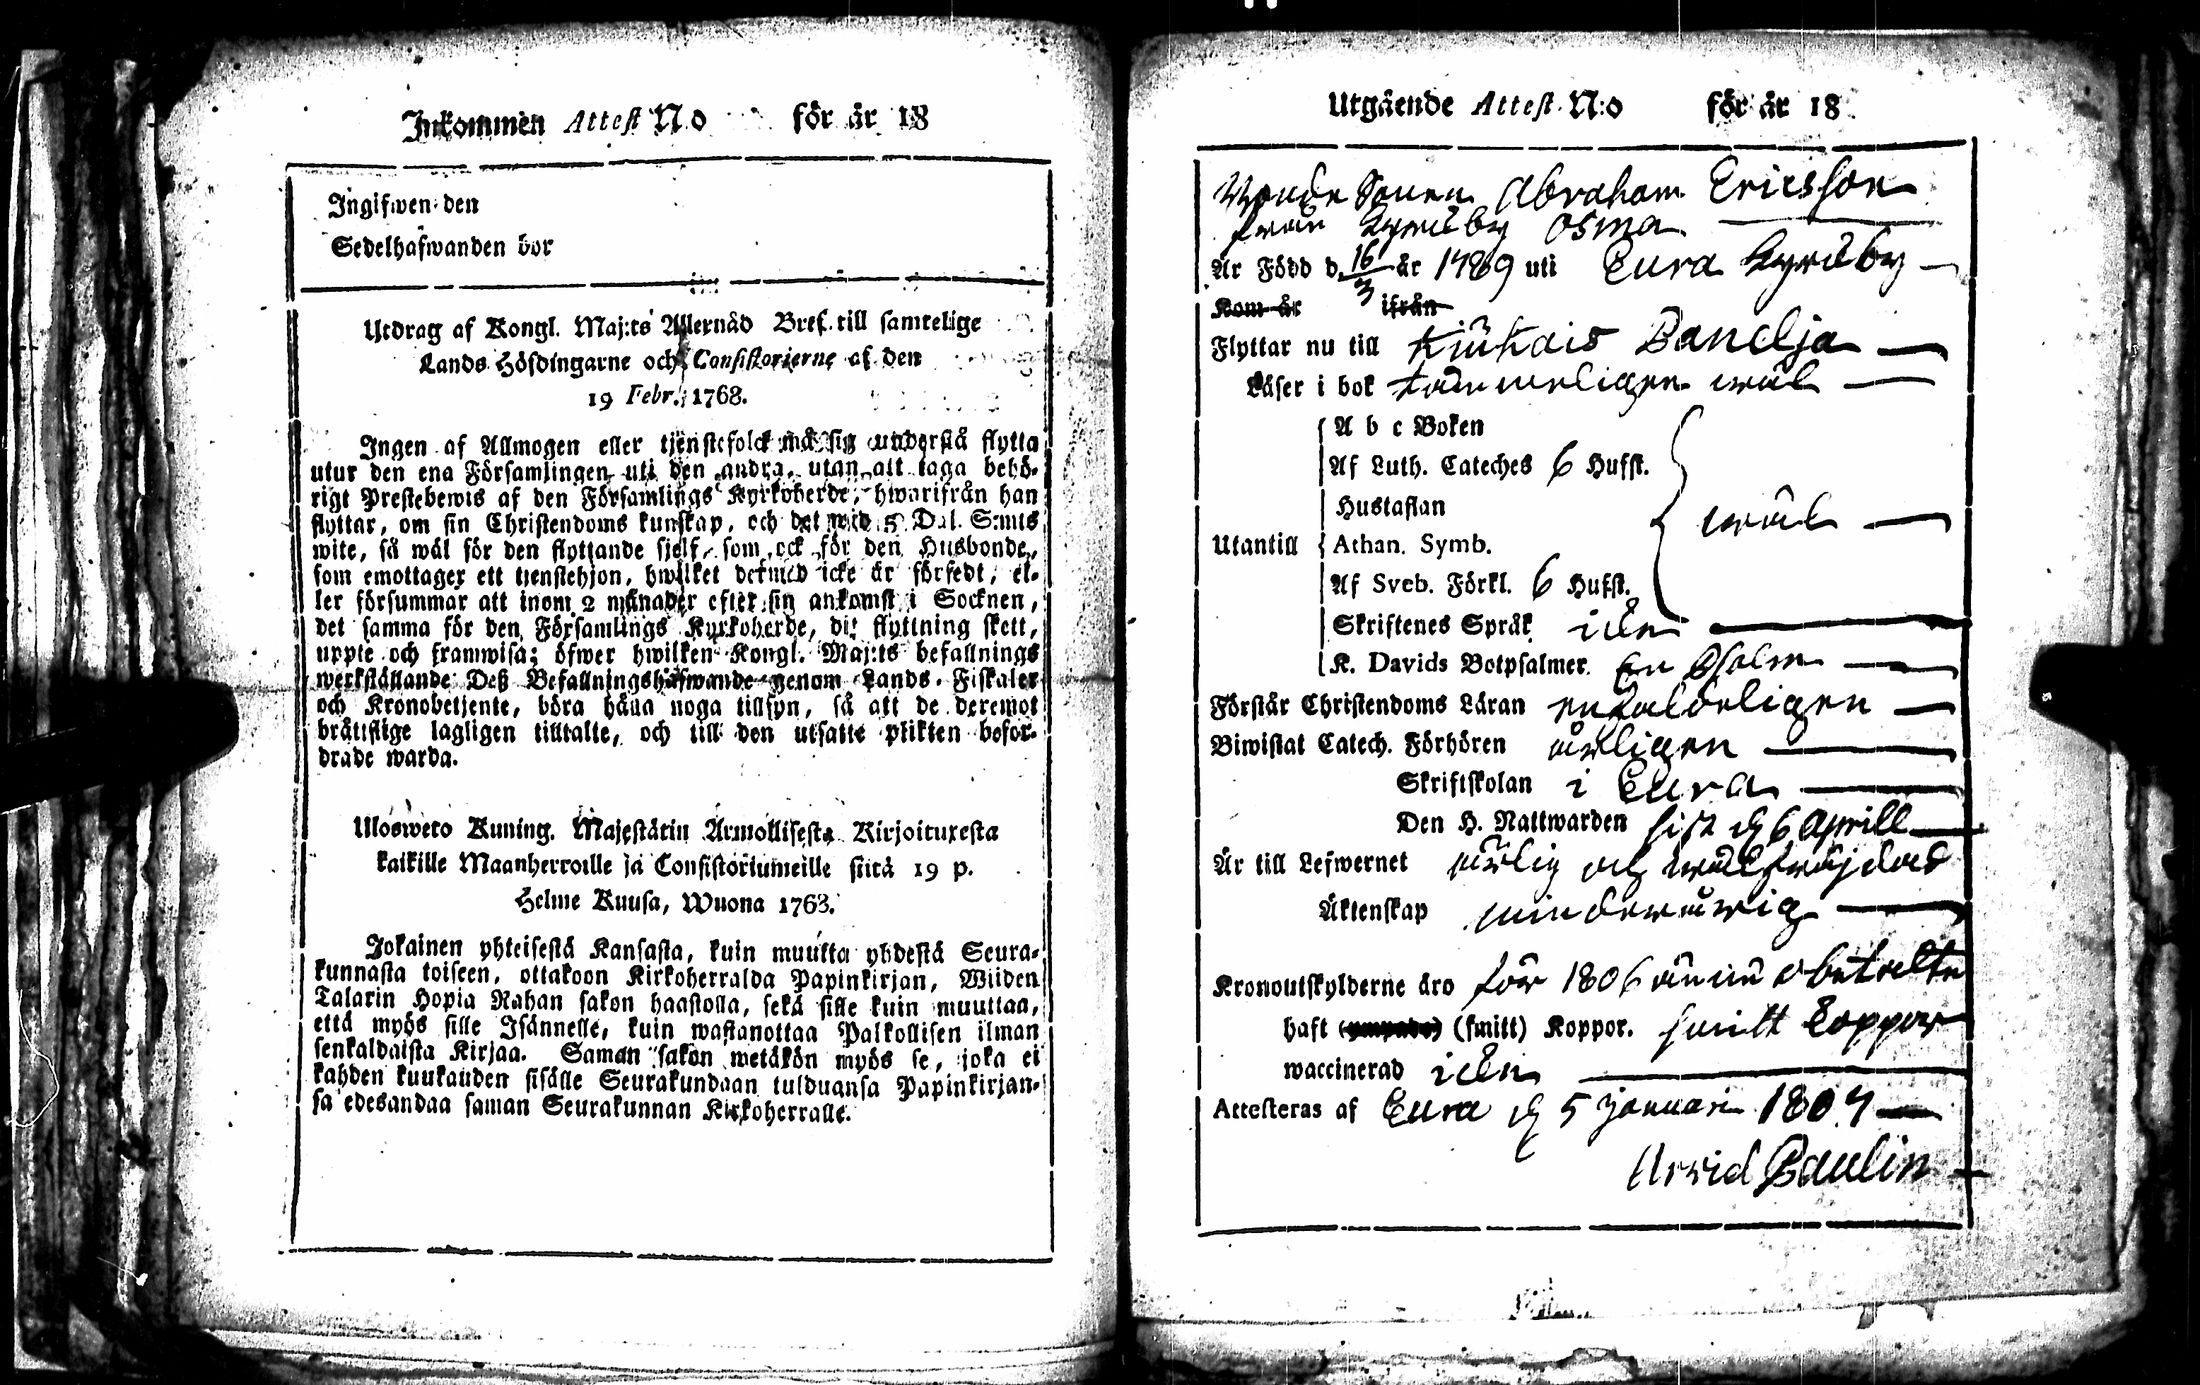 Inkommen Attest N:o för år 18
Ingifwen den
Sedelhafwanden bor
Utdrag af Kongl. Maj:ts Allernåd Bref till samtelige
Lands Höfdingarne och Consistorierne af den
19 Febr. 1768.
Ingen af Allmogen eller tjenstefolck må sig understå flytta
utur den ena Församlingen uti den andra, utan att taga behö-
rigt Prestebewis af den Församlings Kyrkoherde, hwarifrån han
flyttar, om sin Christendoms kunskap, och det wid 5 Dal. S:mts
wite, så wäl för den flyttande sjelf, som ock för den Husbonde,
som emottager ett tjenstehjon, hwilket dermed icke är försedt, el-
ler försummar att inom 2 månader efter sin ankomst i Socknen,
det samma för den Församlings Kyrkoherde, dit flyttning skett,
uppte och framwisa; öfwer hwilken Kongl. Maj:ts befallnings
werkställande Deß Befallningshafwande genom Lands-Fiskaler
och Kronobetjente, böra hålla noga tillsyn, så att de deremot
bråttslige lagligen tilltalte, och till den utsatte plikten befor-
drade warda.
Ulosweto Kuning. Majestätin Armollisesta Kirjoituxesta
kaikille Maanherroille ja Consistoriumeille siitä 19 p.
Helme Kuusa, Wuona 1763.
Jokainen yhteisestä Kansasta, kuin muutta yhdestä Seura-
kunnasta toiseen, ottakoon Kirkoherralda Papinkirjan, Wiiden
Talarin Hopia Rahan sakon haastolla, sekä sille kuin muuttaa,
että myös sille Isännelle, kuin wastanottaa Palkollisen ilman
senkaldaista Kirjaa. Saman sakon wetäkön myös se, joka ei
kahden kuukauden sisälle Seurakundaan tulduansa Papinkirjan-
sa edesandaa saman Seurakunnan Kirkoherralle.
Utgående Attest N:o för år 18
Bonde Sonen Abraham Ericsson
från Kyrkåby Osma
Är Född d. 16/3 år 1789 uti Eura Kyrkåby
Kom år ifrån
Flyttar nu till Kiukais Panelja
Läser i bok tämmeligen wäl
A b c Boken
Af Luth. Cateches 6 Hufst.
Hustaflan wäl
Utantill Athan. Symb.
Af Sveb. Förkl. 6 Hufst.
Skriftenes Språk icke
K. Davids Botpsalmer. En Psalm
Förstår Christendoms Läran enfaldeligen
Biwistat Catech. Förhören årligen
Skriftskolan i Eura
Den H. Nattwarden sist d 6 Aprill
Är till Lefwernet ärlig och wälfräjdad
Äktenskap minderårig
Kronoutskylderne äro för 1806 ännu obetalte
haft (ympade) (smitt) Koppor. smitt koppor
waccinerad icke
Attesteras af Eura d 5 Januari 1807
Arvid Paulin